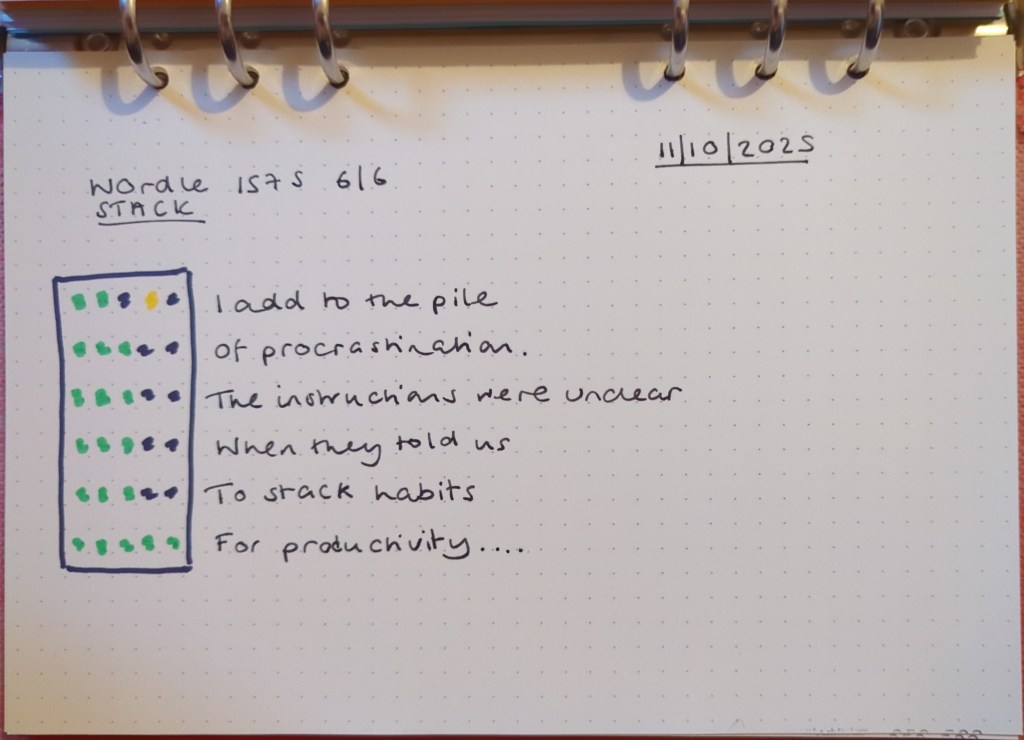 11/10/2025
Wordle 1575 6/6
STACK
I add to the pile
Of procrastination.
The instructions were unclear
When they told us
To stack habits
For productivity....